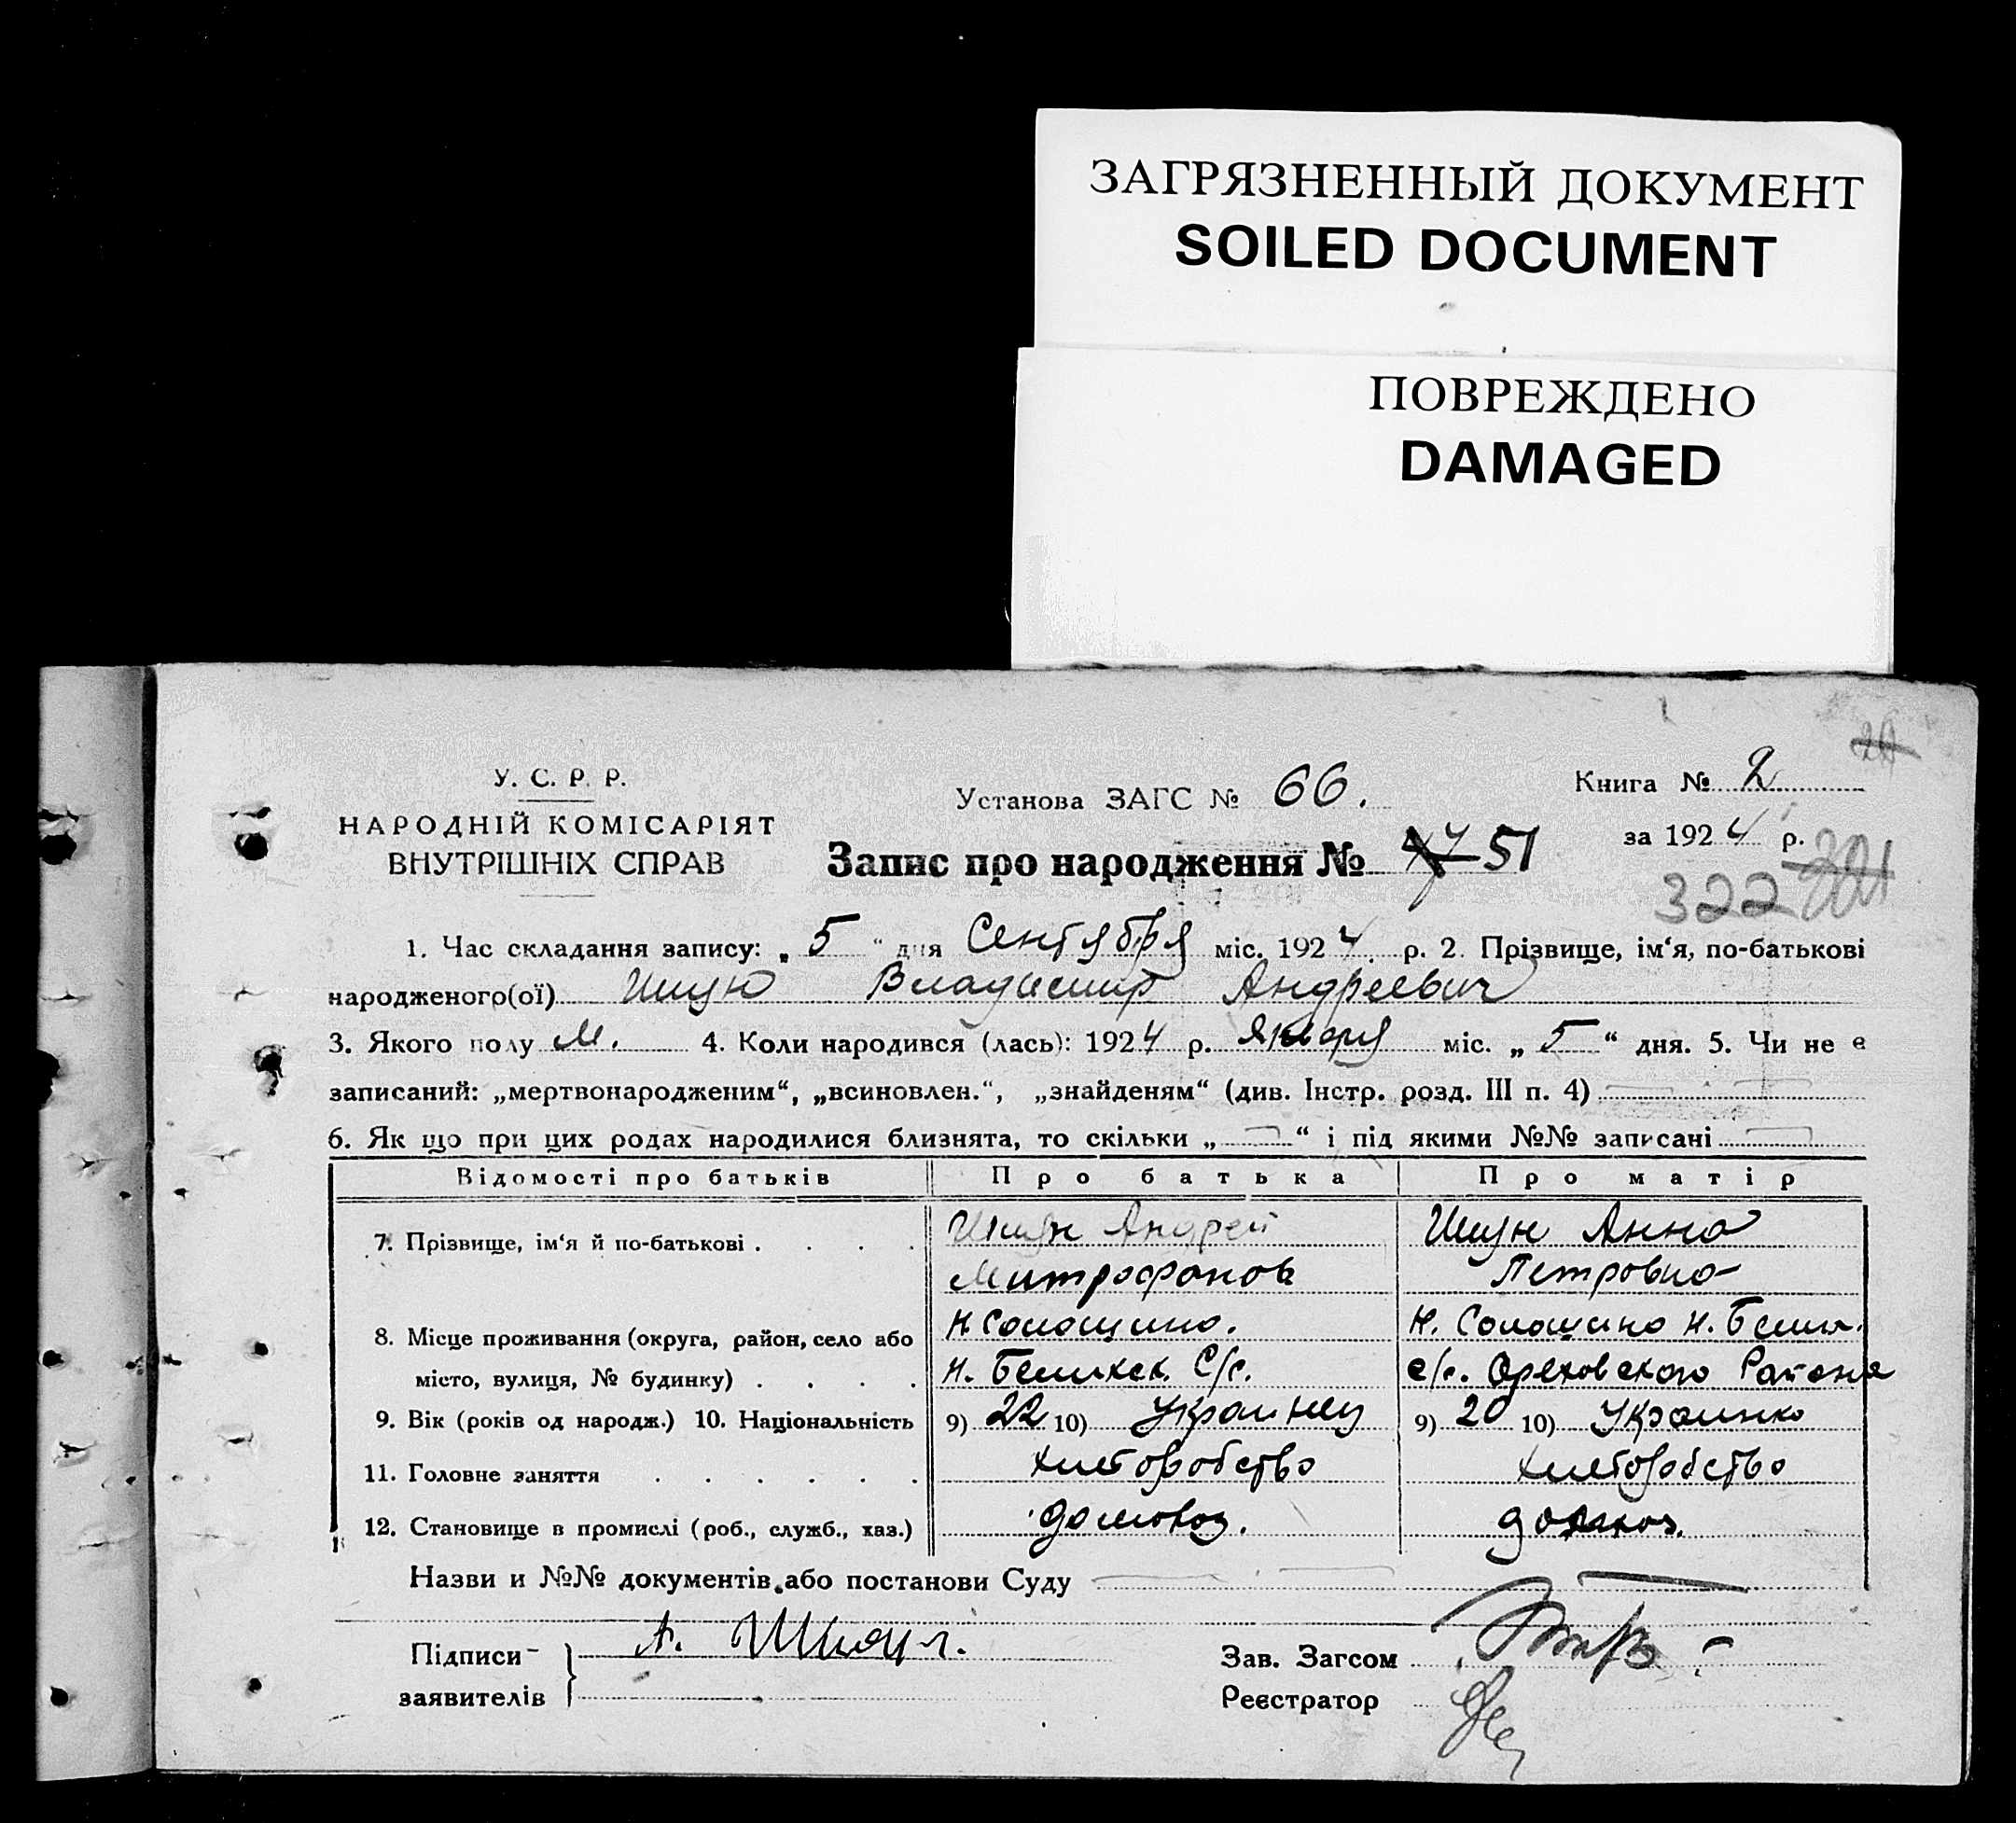 ЗАГРЯЗНЕННЫЙ ДОКУМЕНТ
SOILED DOCUMENT
ПОВРЕЖДЕНО
DAMAGED
У. С. Р. Р.
НАРОДНІЙ КОМІСАРІЯТ
ВНУТРІШНІХ СПРАВ
Установа ЗАГС № 66.
Книга № 2
за 1924 р.
Запис про народження № 51
322 321
1. Час складання запису: „5“ дня Сентября міс. 1924 р. 2. Прізвище, ім‘я, по-батькові
народженого(ої) Владимир Андреевич
3. Якого полу м. 4. Коли народився (лась): 1924 р. Января міс. „5“ дня. 5. Чи не є
записаний: „мертвонародженим“, „всиновлен.“, „знайденям“ (див. Інстр. розд. III п. 4)
6. Як що при цих родах народилися близнята, то скільки „ “ і під якими №№ записані
Відомості про батьків Про батька Про матір
7. Прізвище, ім‘я й по-батькові . . . . Андрей Анна
Митрофанов Петровна
8. Місце проживання (округа, район, село або Н. Солощино. Н. Солощино Н. Белик.
місто, вулиця, № будинку) . . . . Н. Беликск. С/с. с/с. Ореховского Района
9. Вік (років од народж.) 10. Національність 9) 22 10) Украинец 9) 20 10) Украинка
11. Головне заняття . . . . . . хлеборобство хлеборобство
12. Становище в промислі (роб., служб., хаз.) домохоз. домхоз.
Назви и №№ документів або постанови Суду
Підписи
заявителів А.
Зав. Загсом
Реєстратор